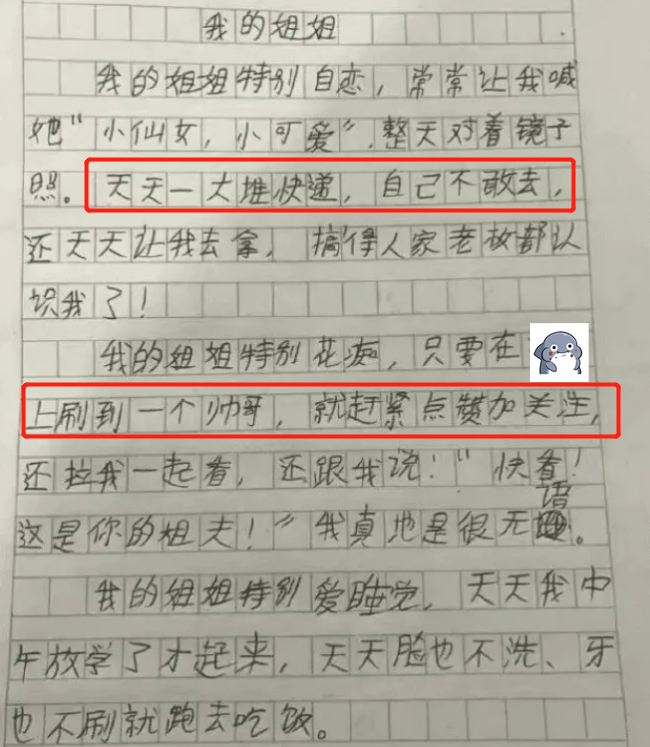 我的姐姐
我的姐姐特别自恋，常常让我喊
她“小仙女，小可爱”，整天对着镜子
照。天天一大堆快递，自己不敢去，
还天天让我去拿，搞得人家老板都认
识我了！
我的姐姐特别花痴，只要在
上刷到一个帅哥，就赶紧点赞加关注，
还拉我一起看，还跟我说！“快看！
这是你的姐夫！”我真地是很无语。
我的姐姐特别爱睡觉，天天我中
午放学了才起来，天天脸也不洗、牙
也不刷就跑去吃饭。